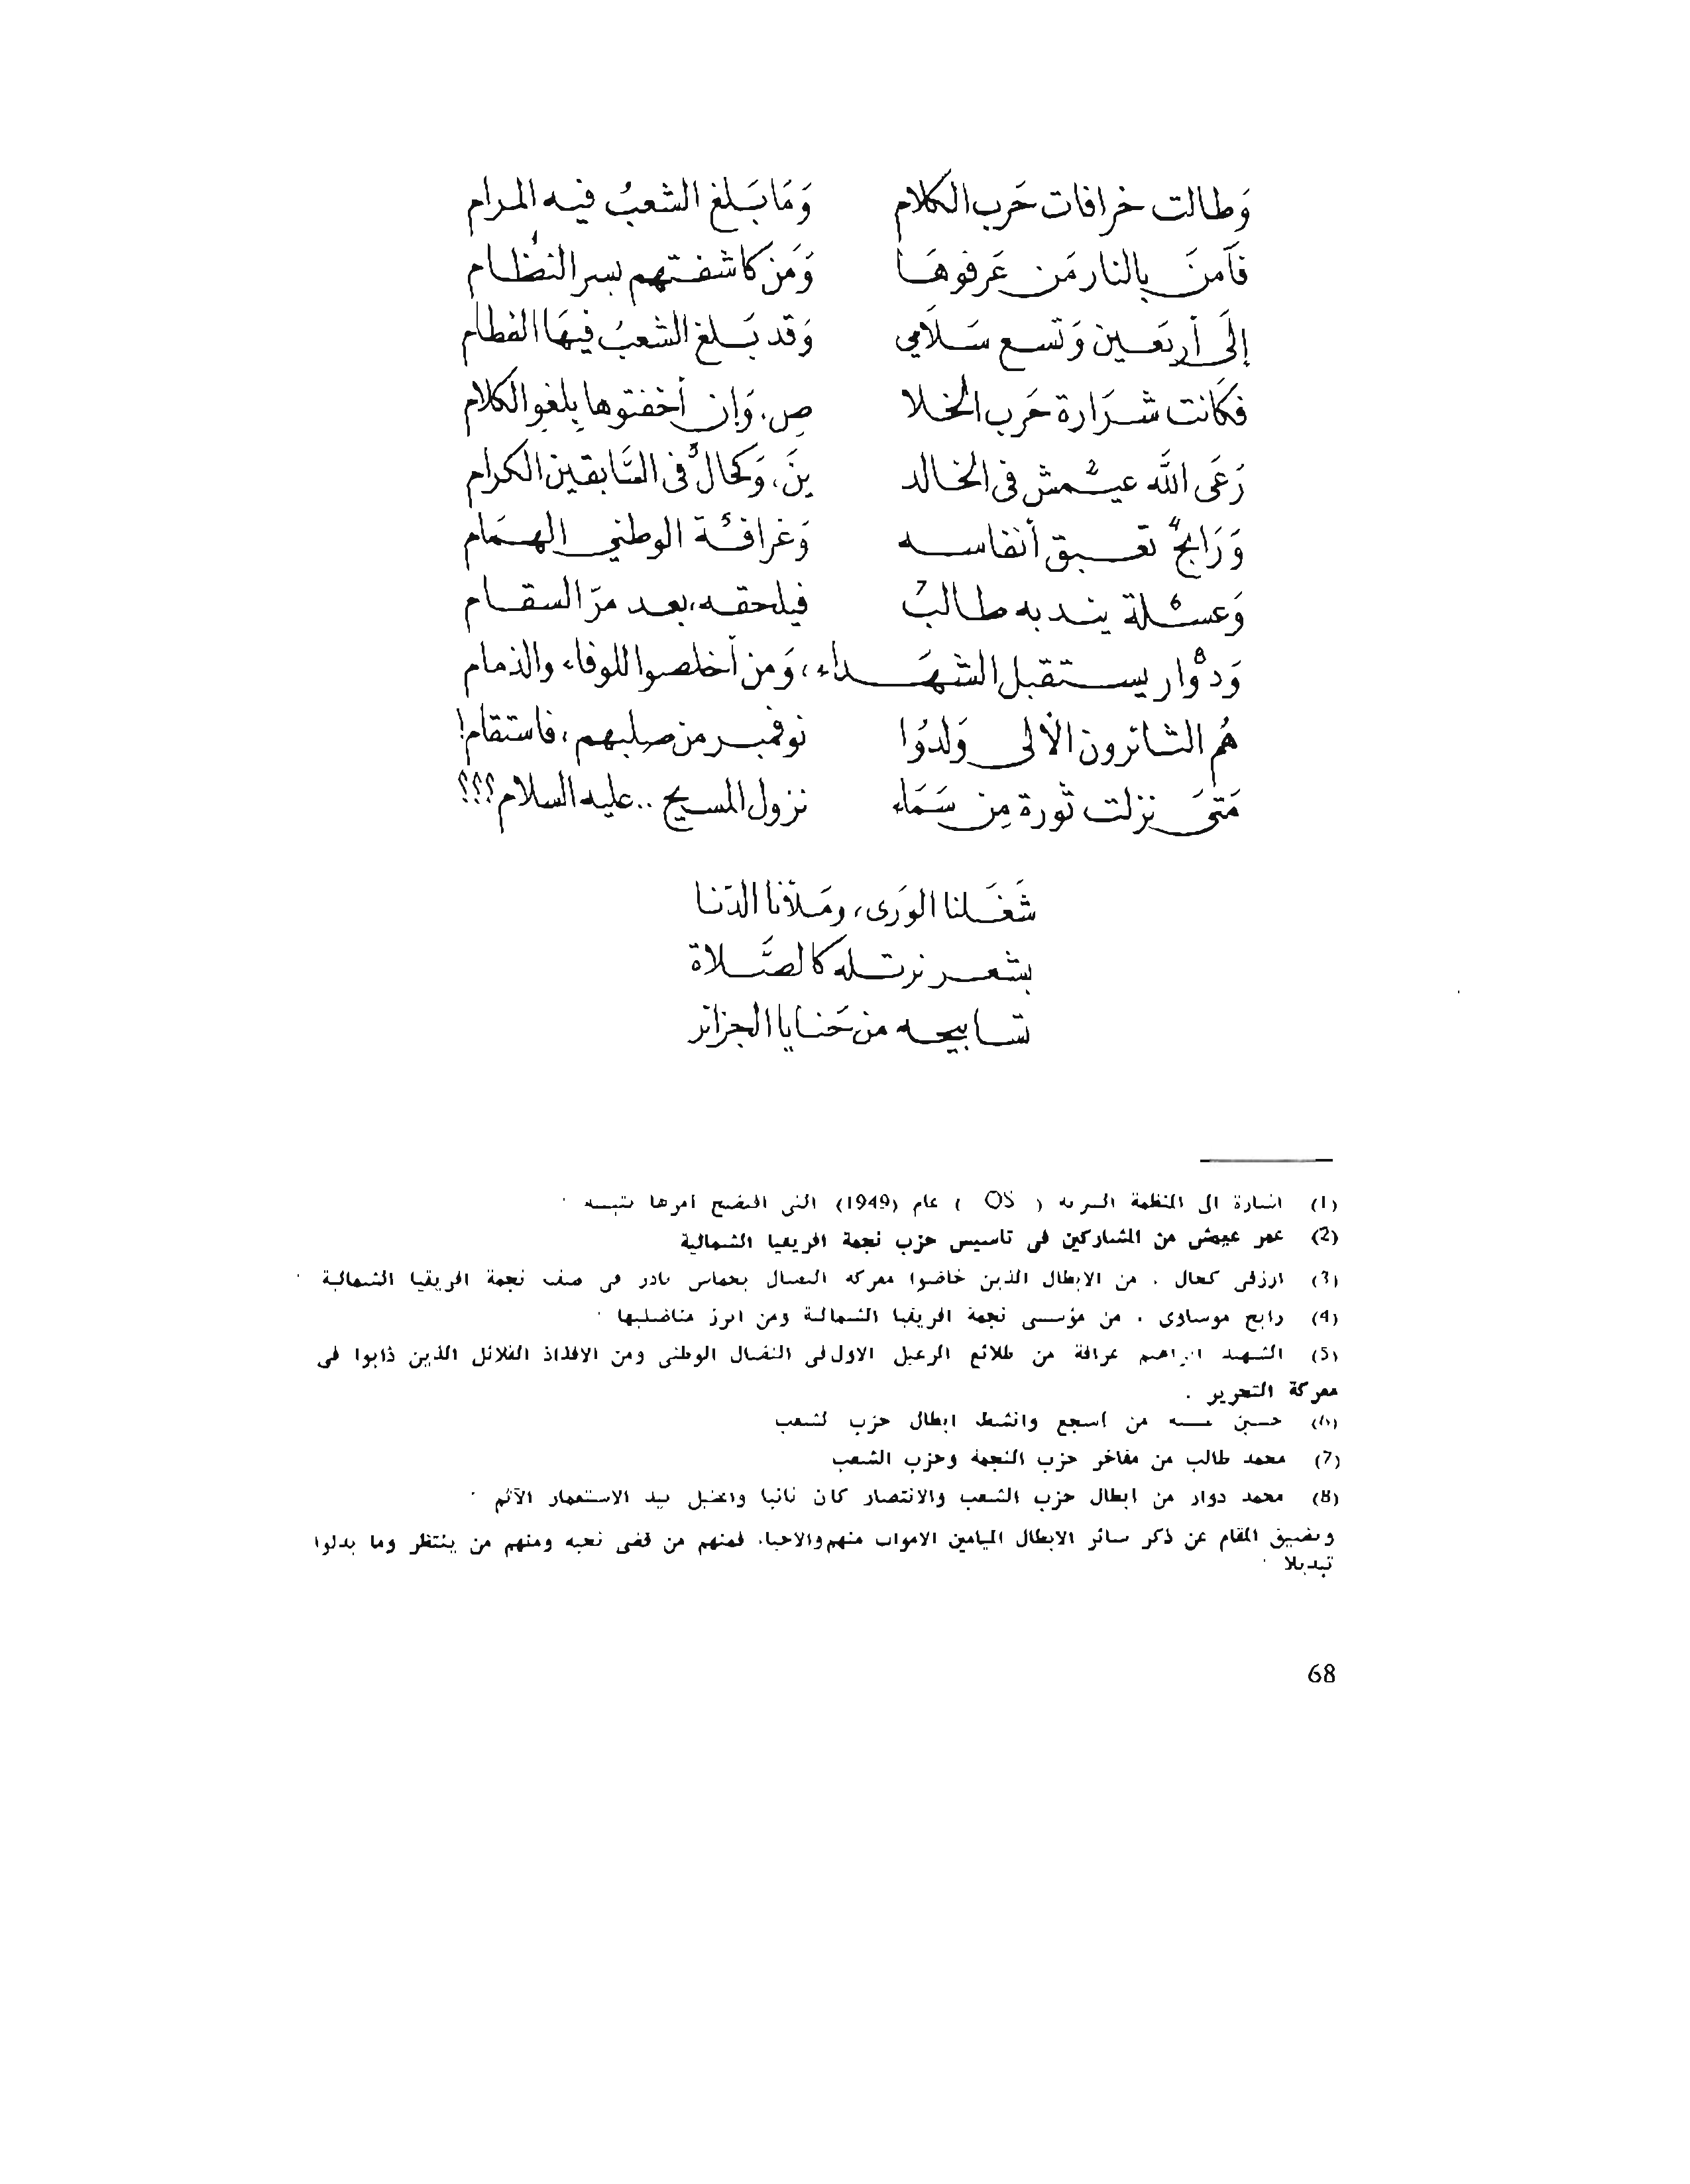 وَطالت خرافات حَرب الكلام وَمَا بَلغ الشعبُ فيه المرام
فآمنَ بالنار مَن عَرفوهَا وَمَن كاشفتهم بسر النظام¹
إلَى أربَعين وَتسع سَلَامي وَقد بَلغ الشعبُ فيهَا الفطام
فكَانت شرَارة حَرب الخلا صِ، وَإن أخفتوها بِلغو الكلام
رَعَى اللَّه عيمش² في الخالد ينَ، وَكحال³ في السَّابقين الكرام
وَرَابحٌ⁴ تعبق أنفاسه وَغرافة⁵ الوطني الهمَام
وَعسلة⁶ يندبه طالبُ⁷ فيلحقه، بعد مرّ السقام
وَدوَّار⁸ يستقبل الشهَداء، وَمن أخلصوا للوفاء والذمام
هُم الثائرون الألى وَلدُوا نوفمبر من صلبهم، فاستقام!
مَتَى نزلت ثورة مِن سَمَاء نزول المسيح .. عليه السلام؟؟؟
شَغَلنا الوَرى، ومَلأنا الدّنا
بشعر نرتله كالصَّلاة
تسابيحه من حَنايا الجزائر
(1) اشارة الى المنظمة السرية ( OS ) عام (1949) التي افتضح امرها بتبسه ٠
(2) عمر عيمش من المشاركين فى تاسيس حزب نجمة افريقيا الشمالية
(3) ارزقى كحال ٠ من الابطال الذين خاضوا معركة النضال بحماس نادر فى صف نجمة افريقيا الشمالية ٠
(4) رابح موساوى ٠ من مؤسسى نجمة افريقيا الشمالية ومن ابرز مناضليها ٠
(5) الشهيد ابراهيم غرافة من طلائع الرعيل الاول فى النضال الوطنى ومن الافذاذ القلائل الذين ذابوا فى
معركة التحرير ٠
(6) حسين عسلة من اشجع وانشط ابطال حزب لشعب
(7) محمد طالب من مفاخر حزب النجمة وحزب الشعب
(8) محمد دوار من ابطال حزب الشعب والانتصار كان نائبا واغتيل بيد الاستعمار الآثم ٠
ويضيق المقام عن ذكر سائر الابطال الميامين الاموات منهم والاحياء، فمنهم من قضى نحبه ومنهم من ينتظر وما بدلوا
تبديلا ٠
68